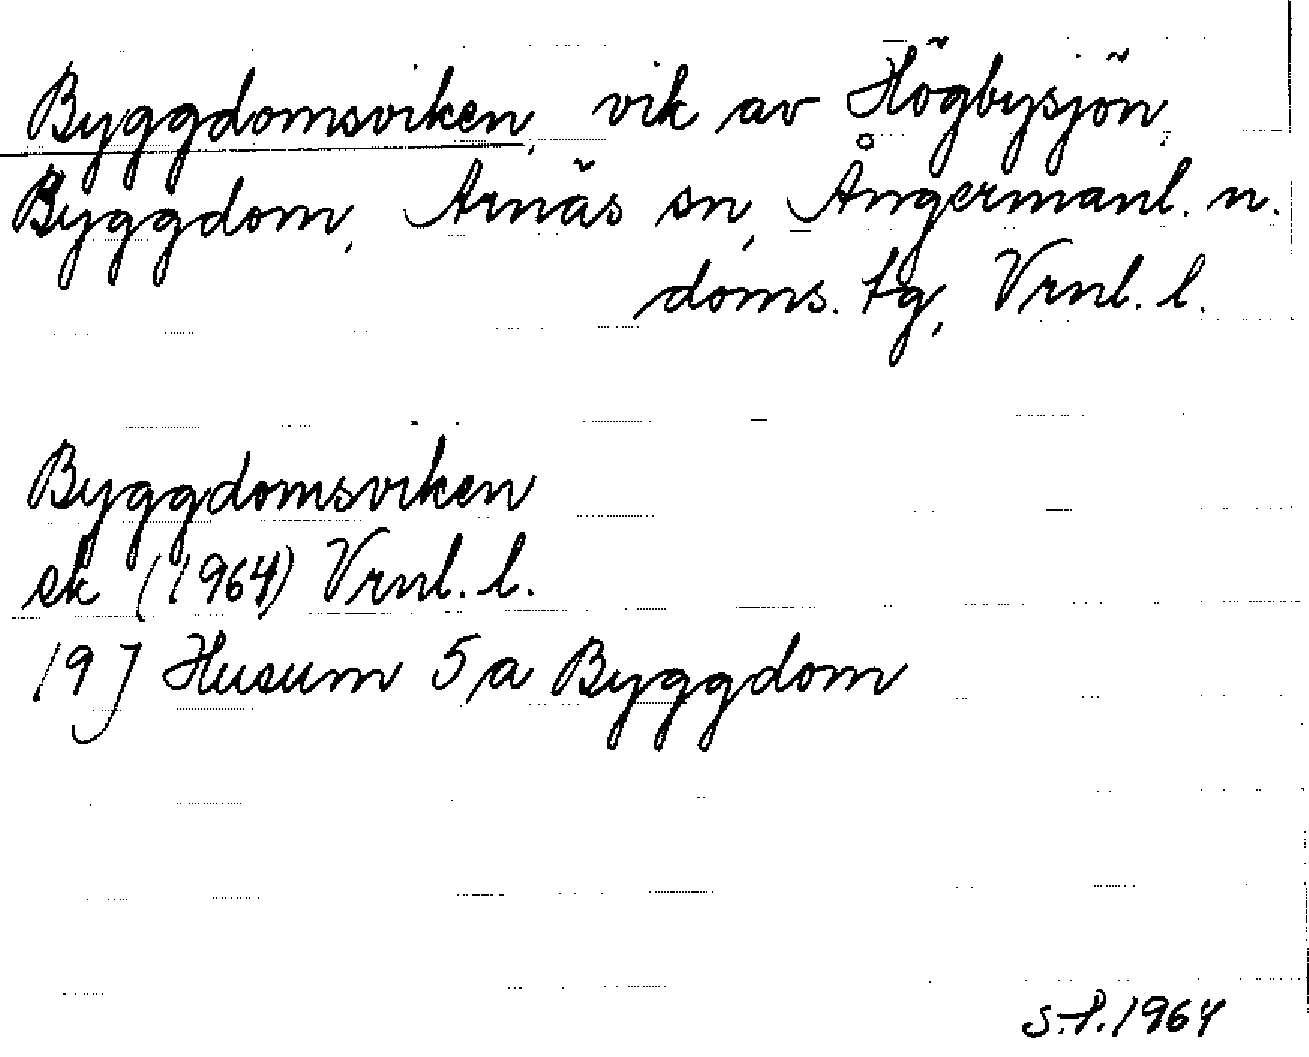 Byggdomsviken, vik av Högbysjön,
Byggdom, Arnäs sn, Ångermanl. n.
doms. tg, Vrnl. l.
Byggdomsviken
ek (1964) Vrnl. l.
19J Husum 5a Byggdom
S.P. 1964